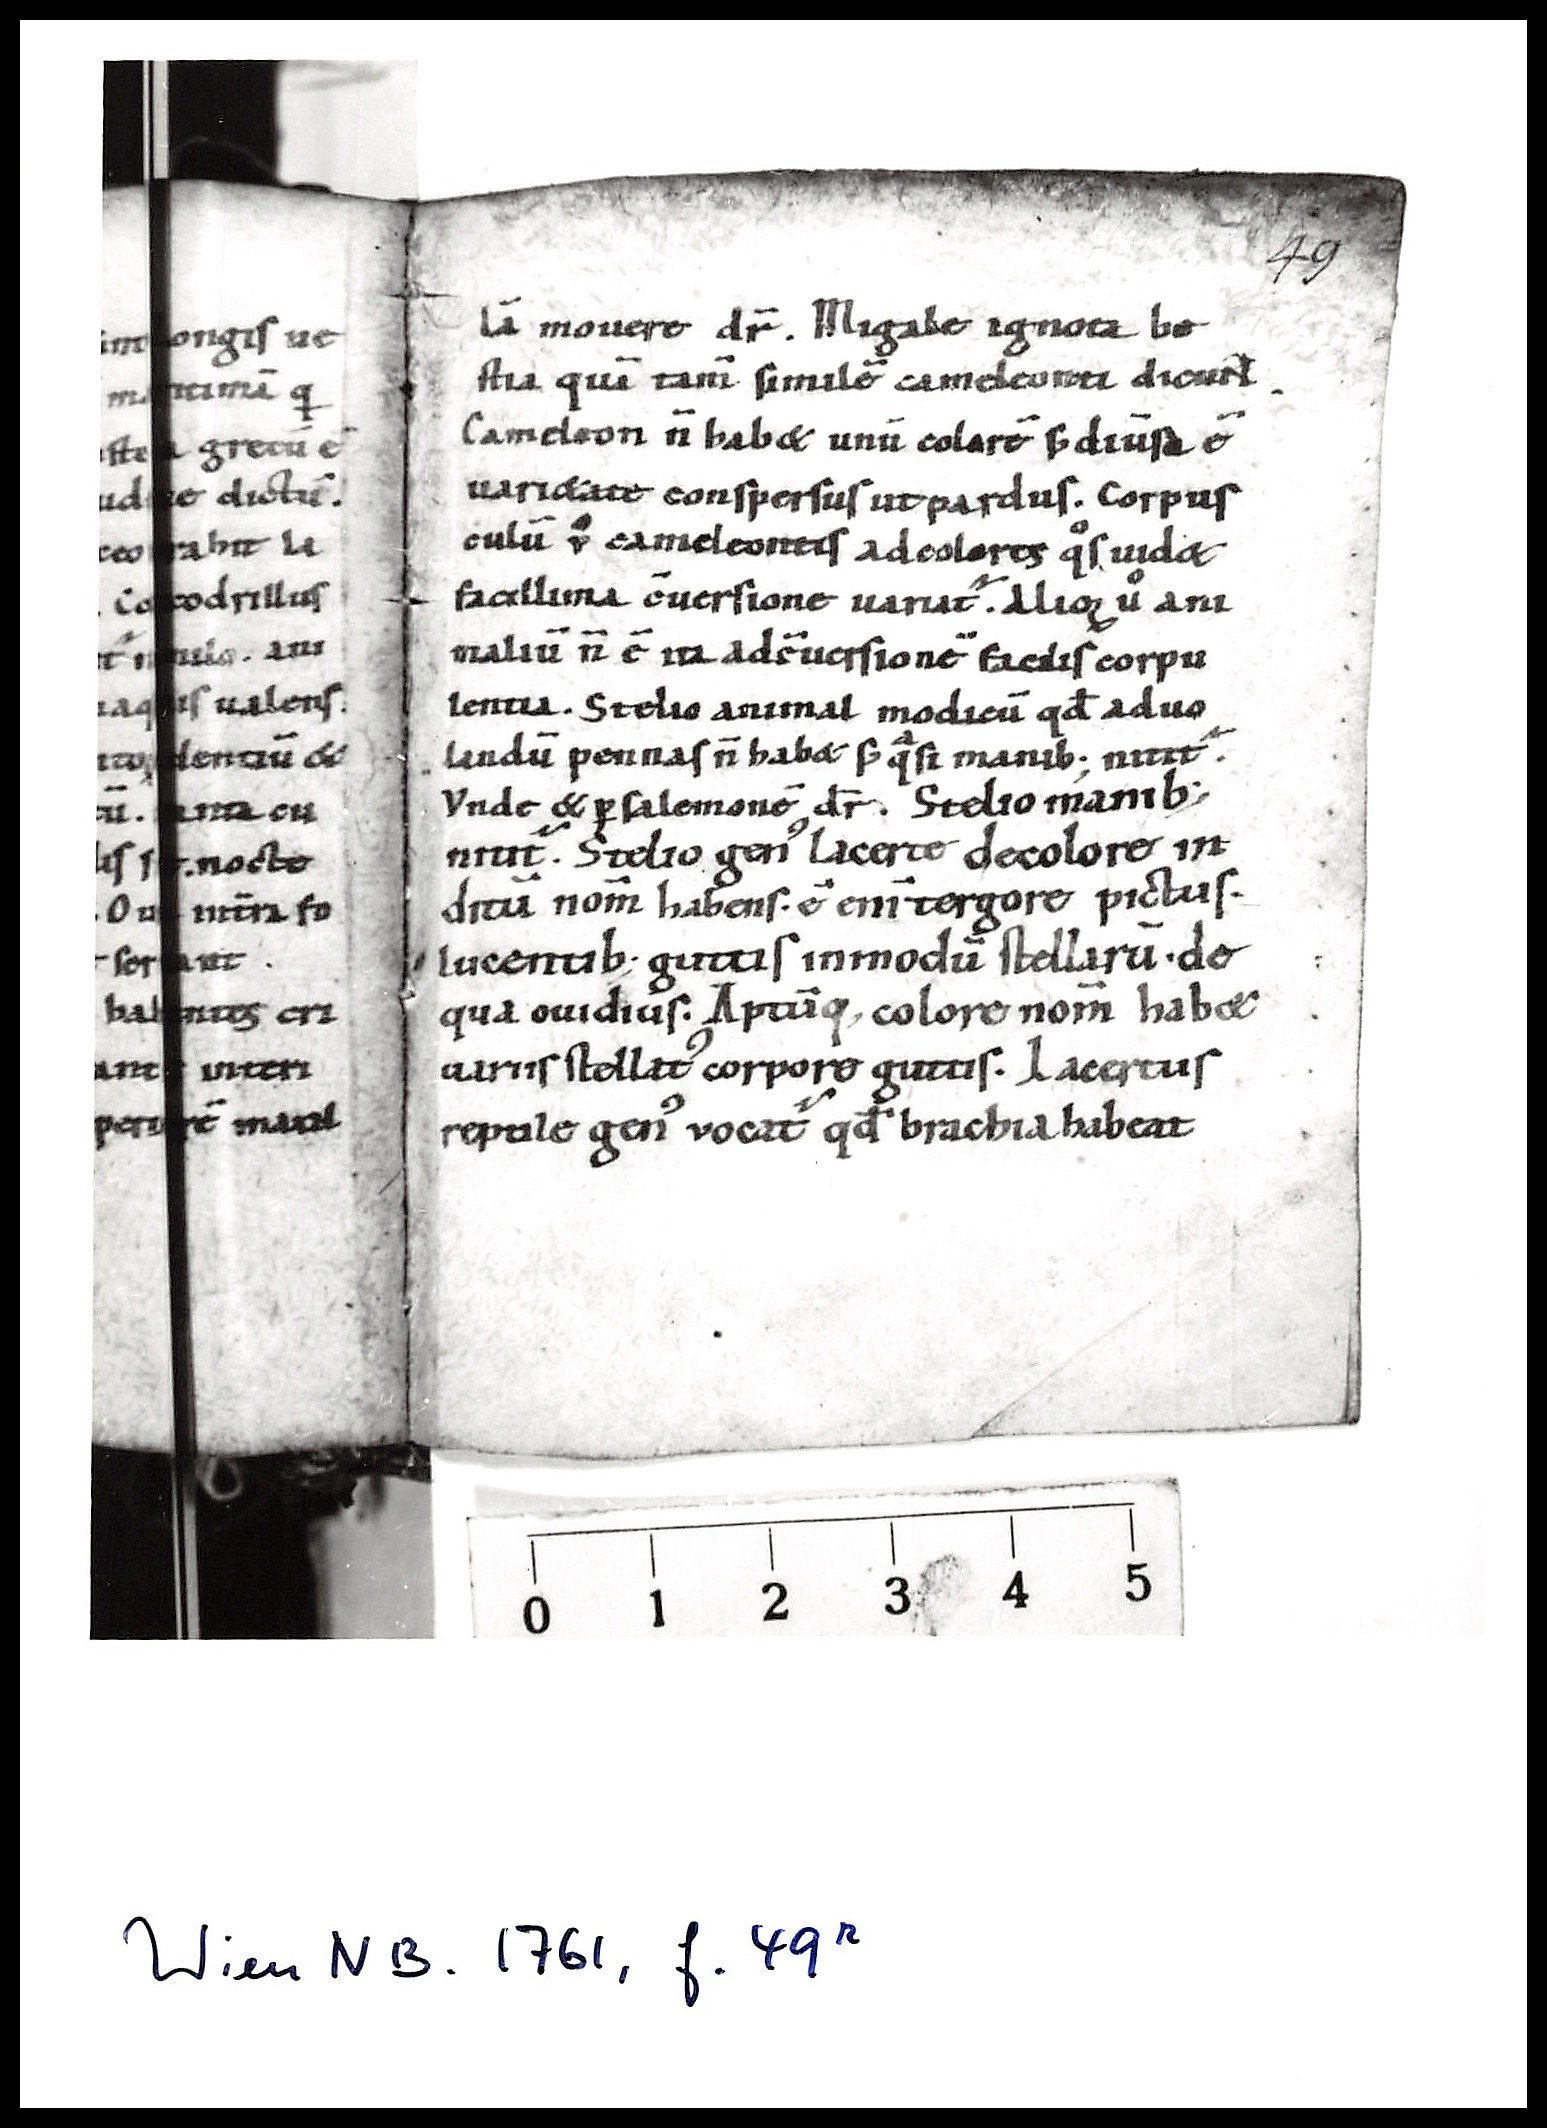 49
ongis ue
timā q
grecū ē
dictū.
rabit la
codrillus
ani
ualens.
lentiū &
cu
nocte
int̄ra fo
cri
interi
maxil
lā mouere dr̄. Migale ignota be
stia quā tam̄ similē cameleonti dicunt
Cameleon n̄ hab& unū colorē s; diūsa ē
uari&ate conspersus ut pardus. Corpus
culū v̊ cameleontis ad colores qͦs uid&
facillima c̄uersione uariat᷑. Alioꝝ uͦ ani
maliū n̄ ē ita ad c̄uersionē facilis corpu
lentia. Stelio animal modicū qđ ad uo
landū pennas n̄ hab& s; qͣsi manib; nitit᷑.
Vnde & ꝑ salemonē dr̄. Stelio manib;
nitit᷑. Stelio genꝰ lacerte de colore in
ditū nom̄ habens. ē enī tergore pictus.
lucentib; guttis in modū stellarū. de
qua ouidius. Aptūq; colore nom̄ hab&
uariis stellatꝰ corpore guttis. Lacertus
reptile genꝰ vocat᷑ qđ brachia habeat
0 1 2 3 4 5
Wien NB. 1761, f. 49r